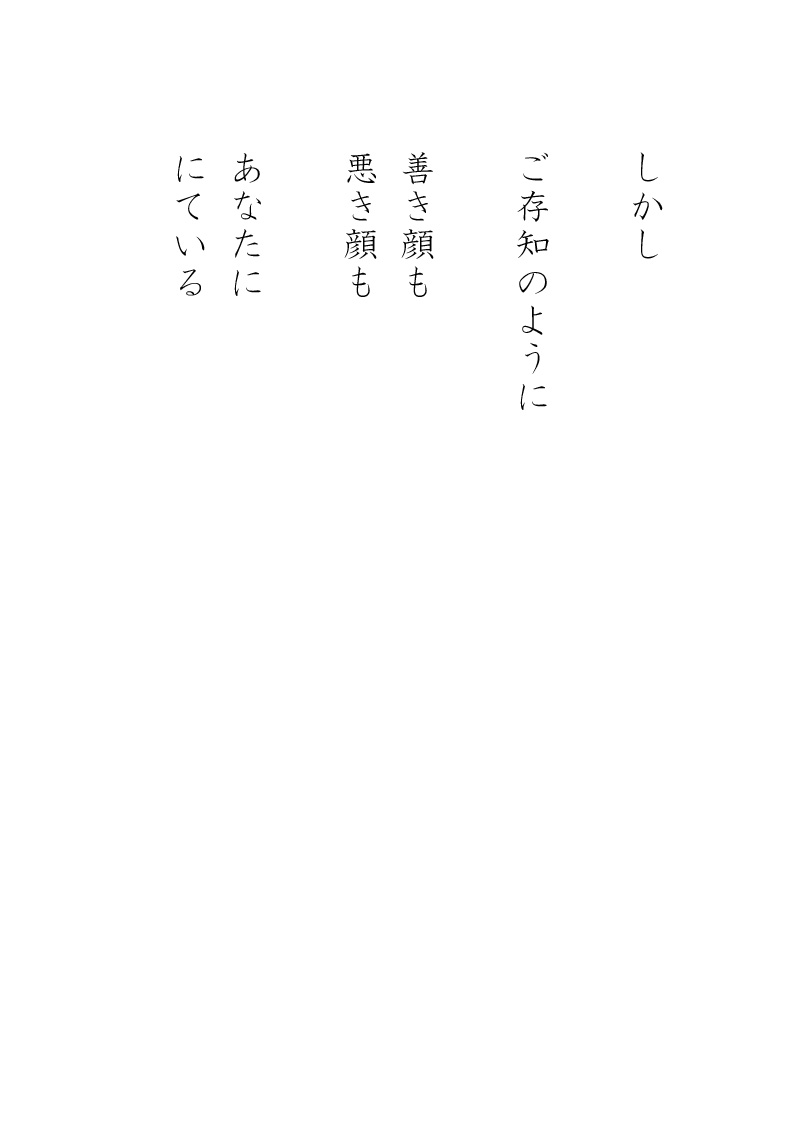 しかし
ご存知のように
善き顔も
悪き顔も
あなたに
にている